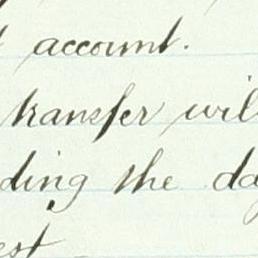 account.
transfer wil
ding the da
est